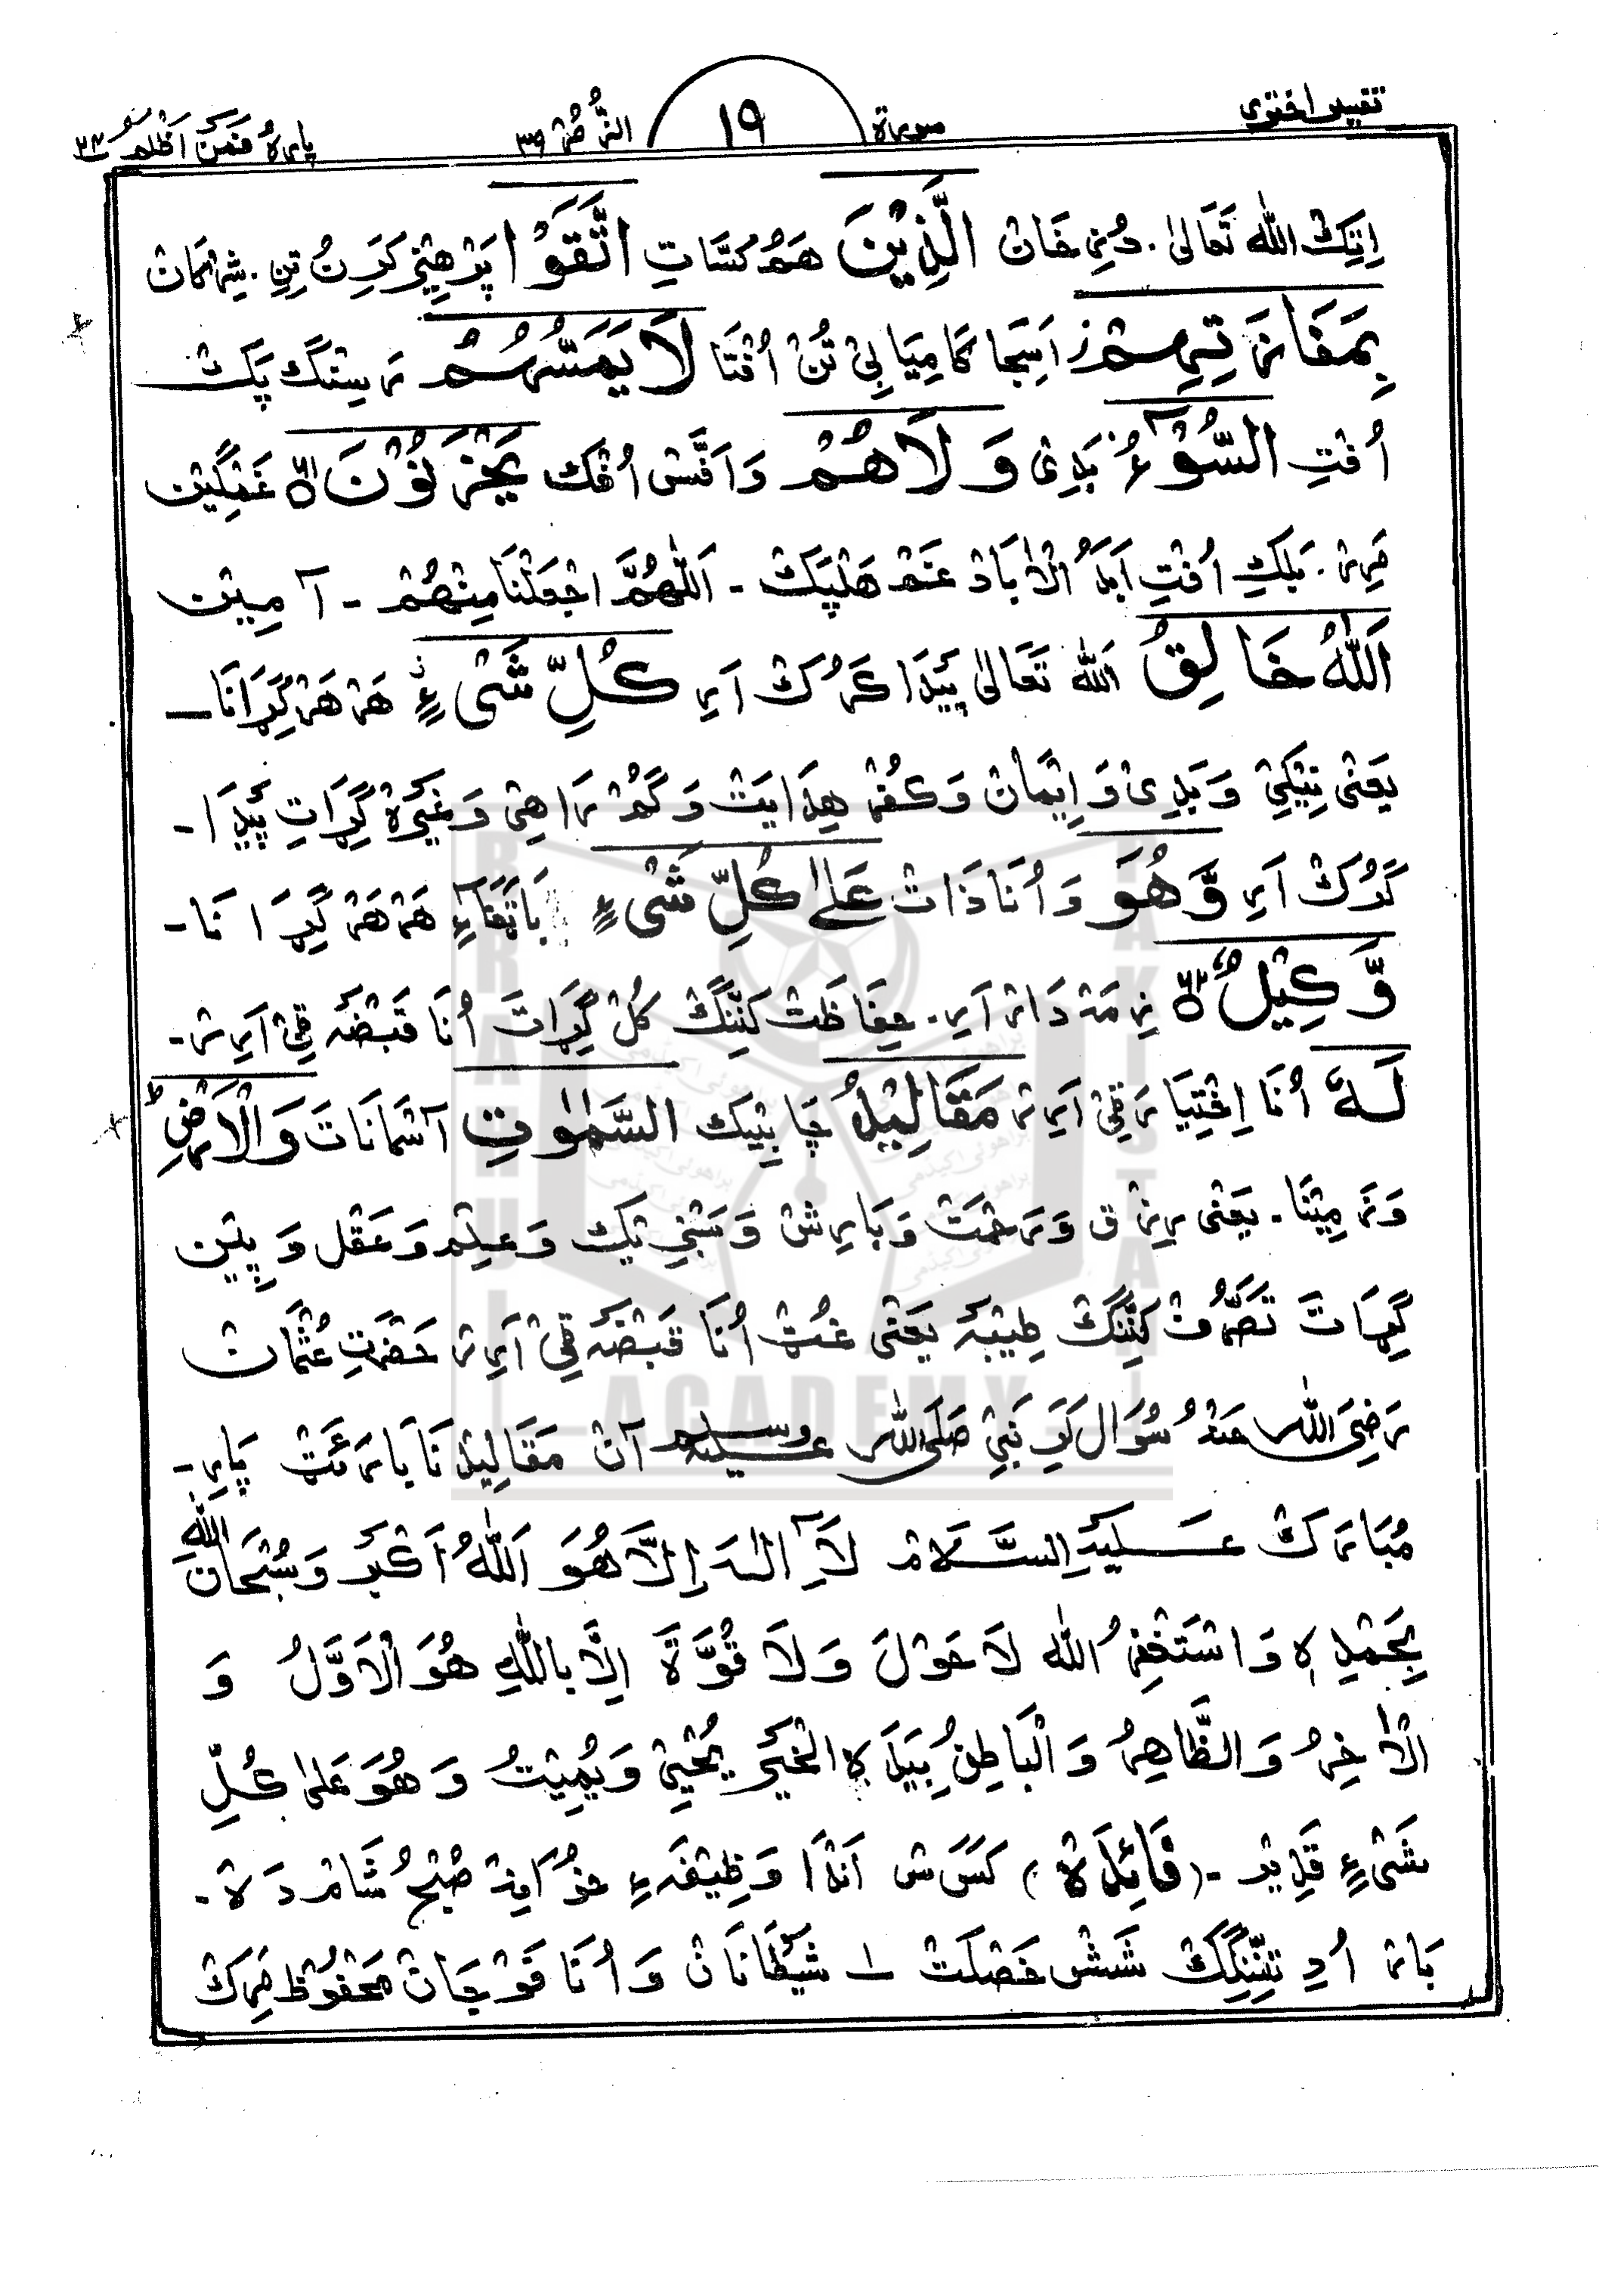 تفسیر اختری سورة ١٩ الزُّمَرْ ٣٩ پارہُ فَمَنْ اَظْلَمُ ٢٤
اِتِکْ اللّٰه تَعَالٰی. دُنِ خَانْ الَّذِیْنَ هَمُ کَسَّاتِ اتَّقَوْا پَرْهِیْز کَرِنُ تِنِ. شِرْکَانْ
بِمَفَازَتِهِمْ ز اَسِجَا کَامِیَابِیْ تُنْ اُفْتَا لَا یَمَسُّهُمُ رَسِنْگ پَکْ
اُفْتِ السُّوْٓءُ بَدِیْ وَلَاهُمْ وَاَفَّسْ اُفْک یَحْزَنُوْنَ ۝۶۱ غَمْگِیْن
مَرِرْ. بَلکِ اُفْتِ اَبَدُ الْاٰبَادْ غَمْ هَلْپَکْ - اَللّٰهُمَّ اجْعَلْنَا مِنْهُمْ - آمِیْن
اَللّٰهُ خَالِقُ اَللّٰه تَعَالٰی پَیْدَا کَرُکْ اَرِ کُلِّ شَیْءٍ هَرْ هَرْ گِڑَانَا -
یَعْنٰی نِیْکِیْ وَبَدِیْ وَاِیْمَانْ وَکُفْرْ هِدَایَتْ وَگُمْ رَاهِیْ وَغَیْرَهْ گِڑَاتِ پَیْدَا -
کَرُکْ اَرِ وَّهُوَ وَاُنَا ذَاتْ عَلٰی کُلِّ شَیْءٍ بَاتَفَاءِ هَرْ هَرْ گِڑَا نَا -
وَّکِیْلٌ ۝۶۲ ذِمَّہْ دَارْ اَرِ. حِفَاظَتْ کَنِّنْگْ کُلْ گِڑَاتَ اُنَا قَبْضَہ قِیْ اَرِرْ -
لَهٗ اُنَا اِخْتِیَارَ قِیْ اَرِرْ مَقَالِیْدُ چَابِیْک السَّمٰوٰتِ آسْمَانَاتَ وَالْاَرْضِ ط
وَزَمِیْنَا. یَعْنٰی رِزْق وَرَحْمَتْ وَبَارِشْ وَسَبْزِیْک وَعِلْم وَعَقْل وَ پِیْن
گِڑَاتَ تَصَرُّفْ کَنِّنْگْ طِیْبَہ یَعْنٰی غُٹْ اُنَا قَبْضَہ قِیْ اَرِرْ حَضْرَتِ عُثْمَانْ
رَضِیَ اللّٰه عَنْهُ سُوَال کَرِ نَبِیْ صَلَّی اللّٰه عَلَیْه وَسَلَّم آنْ مَقَالِیْد نَا بَارَئَتْ پَارِ -
مُبَارَکْ عَلَیْهِ السَّلَامْ لَآ اِلٰهَ اِلَّا هُوَ اَللّٰهُ اَکْبَر وَسُبْحَانَ اللّٰهِ
بِحَمْدِهٖ وَاسْتَغْفِرُ اللّٰه لَا حَوْلَ وَلَا قُوَّةَ اِلَّا بِاللّٰهِ هُوَ الْاَوَّلُ وَ
الْاٰخِرُ وَالظَّاهِرُ وَالْبَاطِنُ بِیَدِهِ الْخَیْر یُحْیِیْ وَیُمِیْتُ وَهُوَ عَلٰی کُلِّ
شَیْءٍ قَدِیْر - (فَائِدَهْ) کَسَسْ اَنْدَا وَظِیْفَہ ءِ خُوَانِہْ صُبْح شَامْ دَہْ -
بَارْ اُدِ تِنِّنْگِکْ شَشْ خَصْلَتْ ١ شَیْطَانَانْ وَاُنَا فَوْجَانْ مَحْفُوْظ مَرِکْ